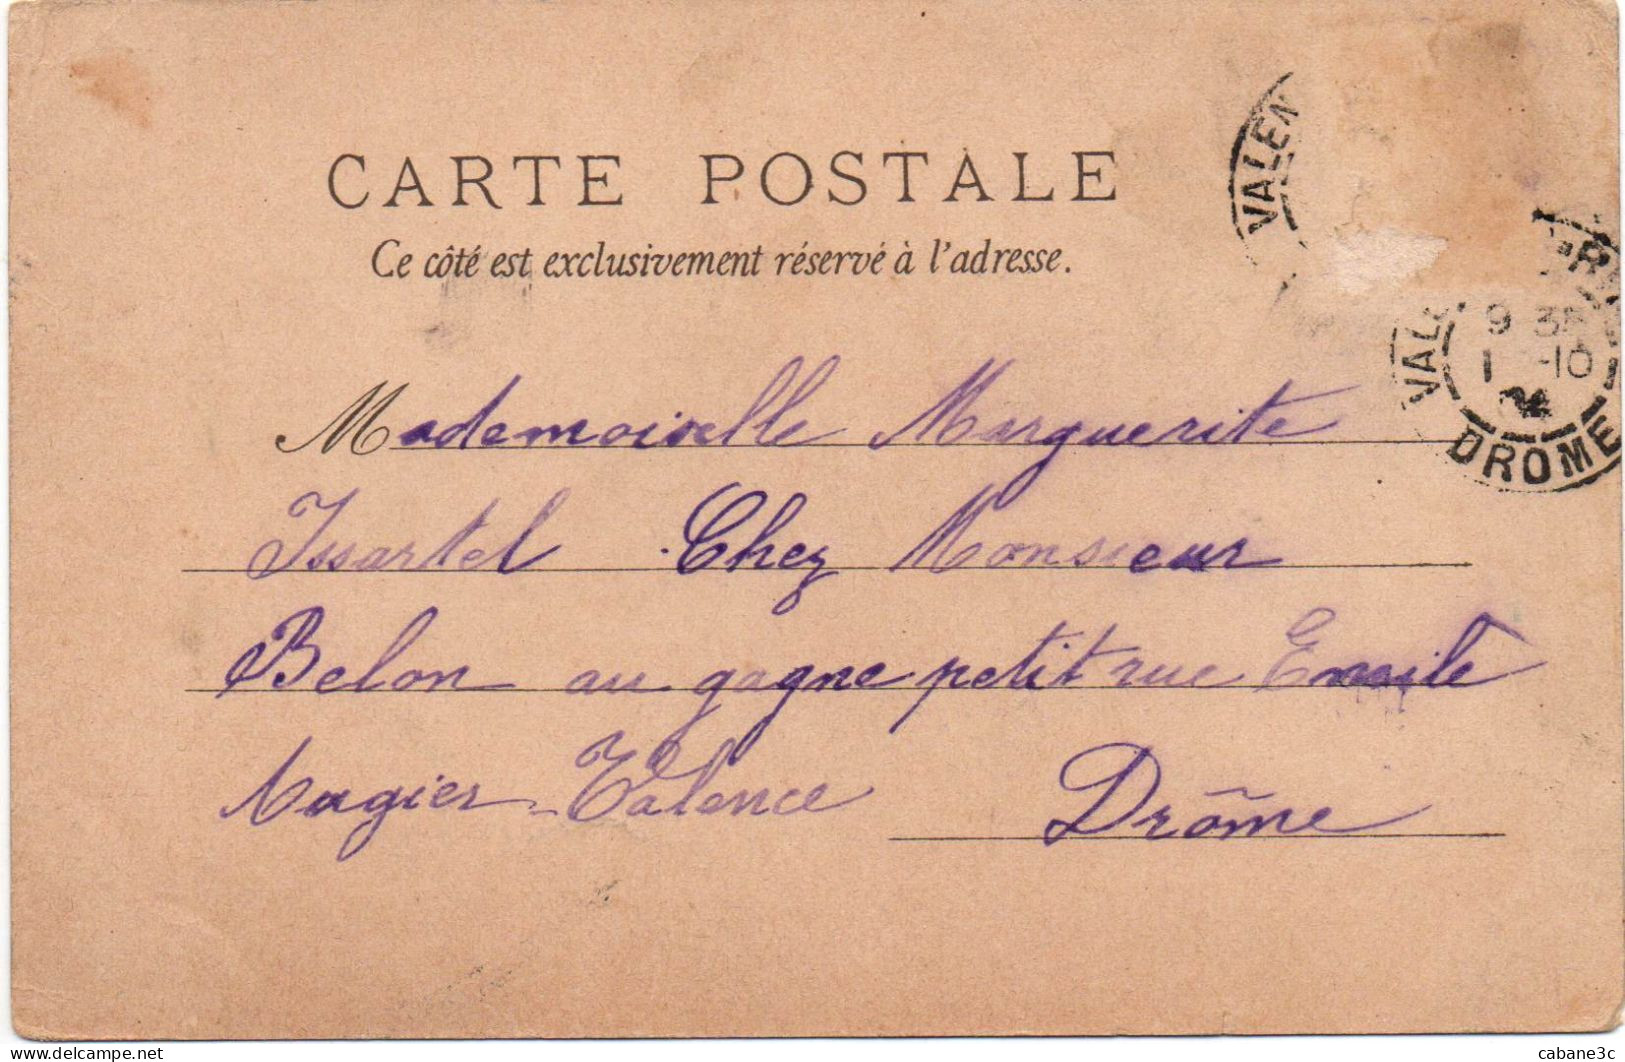 CARTE POSTALE
Ce côté est exclusivement réservé à l'adresse.
VALEN
VALE
9 35
1 -10
04
DROME
Mademoiselle Marguerite
Issartel Chez Monsieur
Belon au gagne petit rue Emile
Augier - Valence Drôme
www.delcampe.net
cabane3c